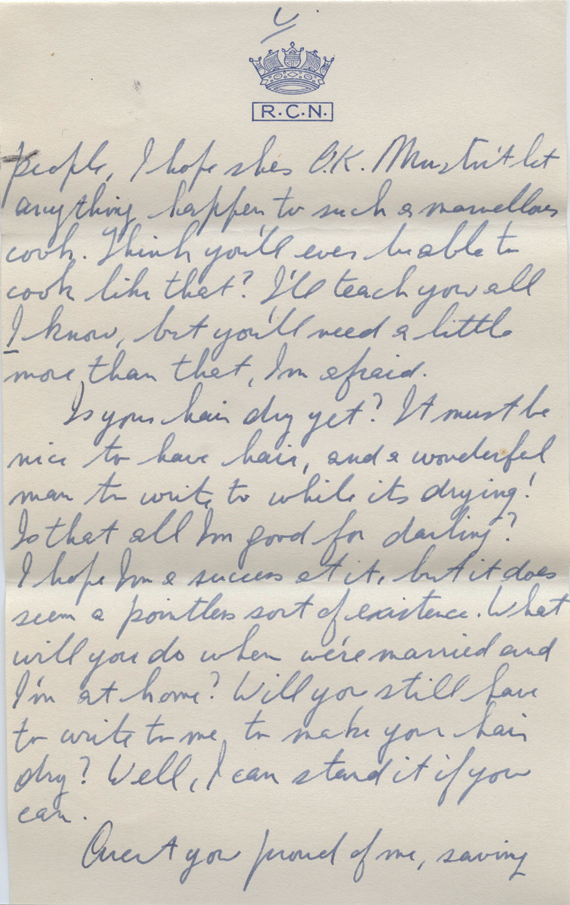 R.C.N.
people, I hope shes O.K. Mustn't let
anything happen to such a marvellous
cook. Think you'll ever be able to
cook like that? I'll teach you all
I know, but you'll need a little
more than that, I'm afraid.
Is your hair dry yet? It must be
nice to have hair, and a wonderful
man to write to while its drying!
Is that all I'm good for darling?
I hope I'm a success at it, but it does
seem a pointless sort of existence. What
will you do when we're married and
I'm at home? Will you still have
to write to me to make your hair
dry? Well, I can stand it if you
can.
Aren't you proud of me, saving